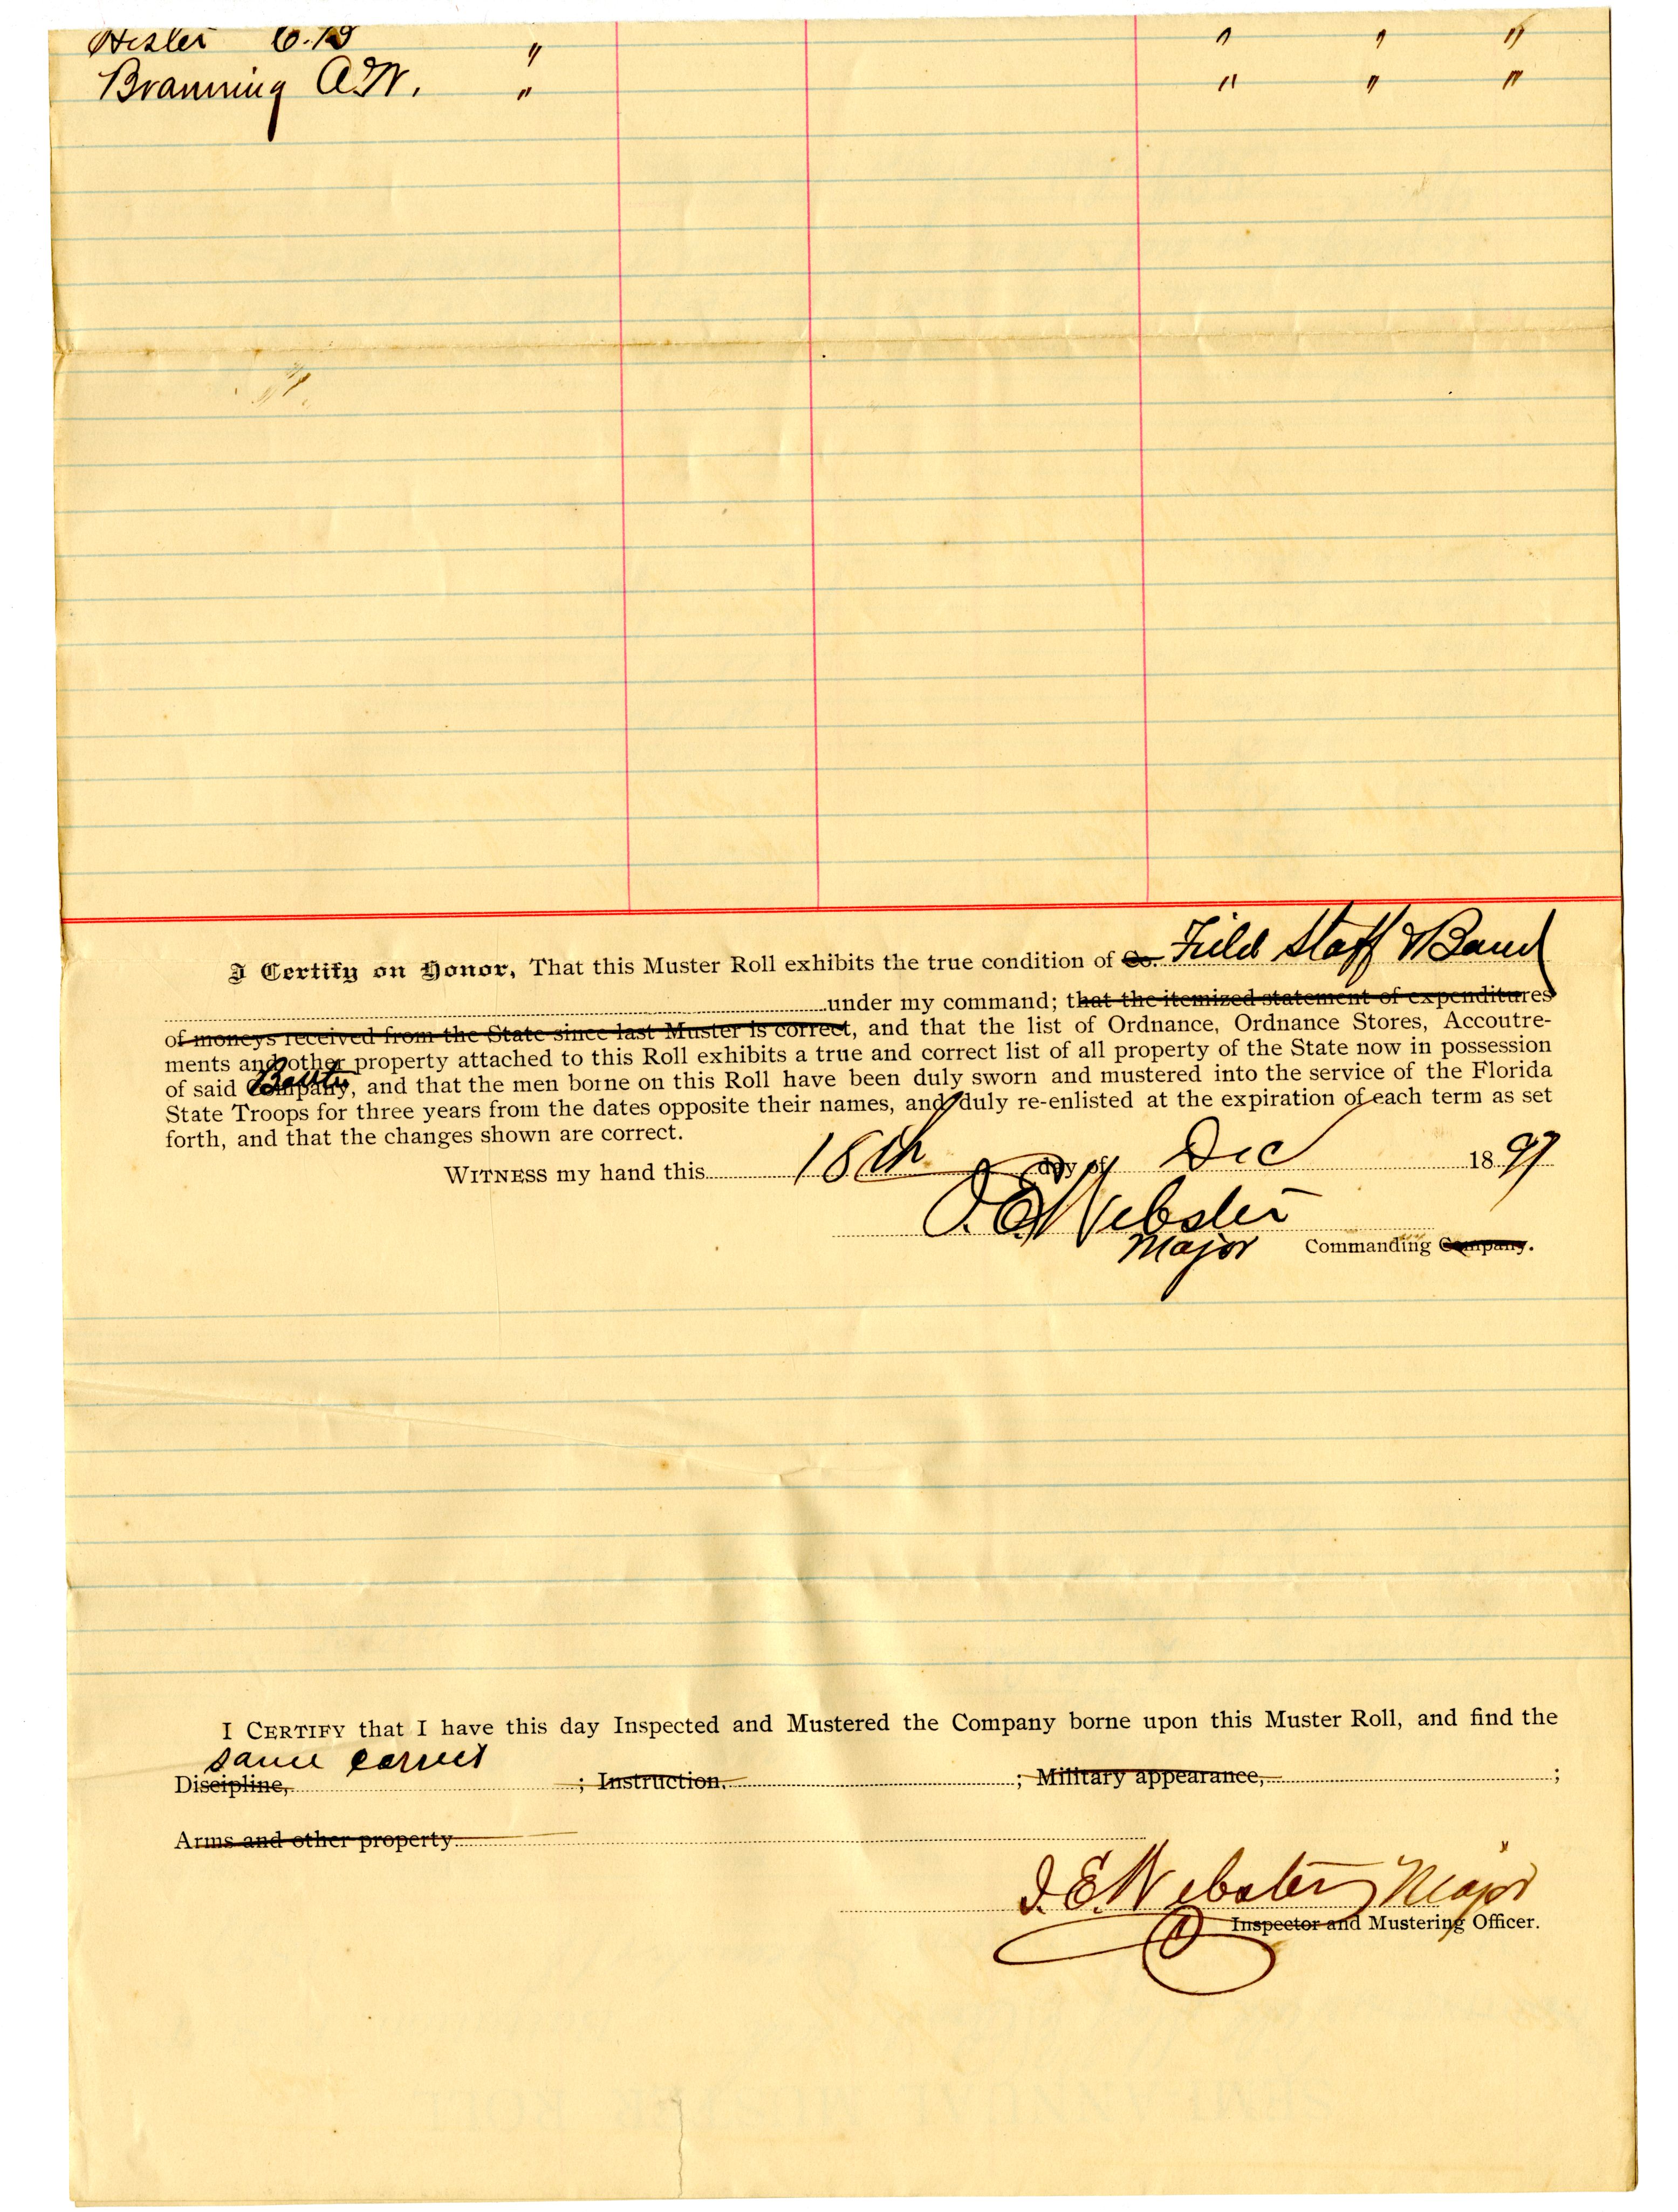 Hesler C.B " " " "
Branning A.W. " " " "
I Certify on Honor, That this Muster Roll exhibits the true condition of Co. Field Staff & Band
under my command; that the itemized statement of expenditures
of moneys received from the State since last Muster is correct, and that the list of Ordnance, Ordnance Stores, Accoutre-
ments and other property attached to this Roll exhibits a true and correct list of all property of the State now in possession
of said Company, and that the men borne on this Roll have been duly sworn and mustered into the service of the Florida
State Troops for three years from the dates opposite their names, and duly re-enlisted at the expiration of each term as set
forth, and that the changes shown are correct.
WITNESS my hand this 18th day of Dec 1897
J.E. Webster
Major Commanding Company.
I CERTIFY that I have this day Inspected and Mustered the Company borne upon this Muster Roll, and find the
same correct
Discipline, ; Instruction, ; Military appearance, ;
Arms and other property
J.E. Webster Major
Inspector and Mustering Officer.